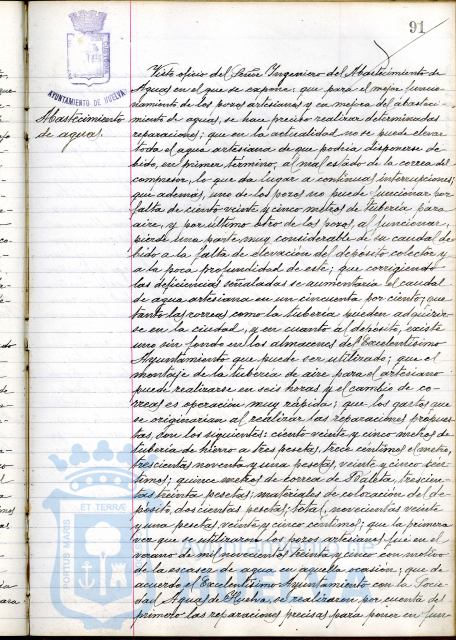 91
AYUNTAMIENTO DE HUELVA
Abastecimiento
de aguas.
Visto oficio del Señor Ingeniero del Abastecimiento de
Aguas en el que se expone: que para el mejor funcio-
namiento de los pozos artesianos y en mejora del abasteci-
miento de aguas, se hace preciso realizar determinadas
reparaciones; que en la actualidad no se puede elevar
toda el agua artesiana de que podría disponerse de-
bido, en primer término, al mal estado de la correa del
compresor, lo que da lugar a continuas interrupciones;
que además, uno de los pozos no puede funcionar por
falta de ciento veinte y cinco metros de tubería para
aire, y por último otro de los pozos, al funcionar,
pierde una parte muy considerable de su caudal de-
bido a la falta de elevación del depósito colector y
a la poca profundidad de este; que corrigiendo
las deficiencias señaladas se aumentaría el caudal
de agua artesiana en un cincuenta por ciento; que
tanto las correas como la tubería pueden adquirir-
se en la ciudad, y en cuanto al depósito, existe
uno sin fondo en los almacenes del Excelentísimo
Ayuntamiento que puede ser utilizado; que el
montaje de la tubería de aire para el artesiano
puede realizarse en seis horas y el cambio de co-
rreas es operación muy rápida; que los gastos que
se originarían al realizar las reparaciones propues-
tas, son los siguientes: ciento veinte y cinco metros de
tubería de hierro a tres pesetas, trece céntimos el metro,
trescientas noventa y una pesetas, veinte y cinco cén-
timos; quince metros de correa de Balata, trescien-
tas treinta pesetas; materiales de colocación del de-
pósito, doscientas pesetas; total, novecientas veinte
y una pesetas, veinte y cinco céntimos; que la primera
vez que se utilizaron los pozos artesianos fué en el
verano de mil novecientos treinta y cinco con motivo
de la escasez de agua en aquella ocasión; que de
acuerdo el Excelentísimo Ayuntamiento con la Socie-
dad Aguas de Huelva, se realizaron por cuenta del
primero las reparaciones precisas para poner en fun-
PORTUS MARIS ET TERRAE